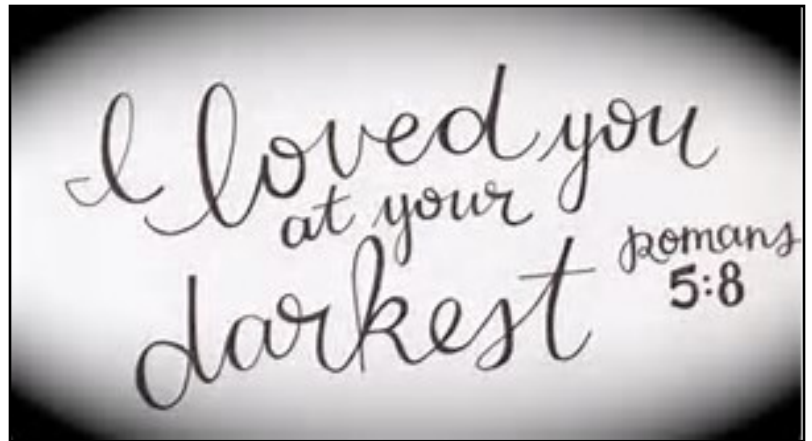 I loved you
at your
darkest
romans
5:8